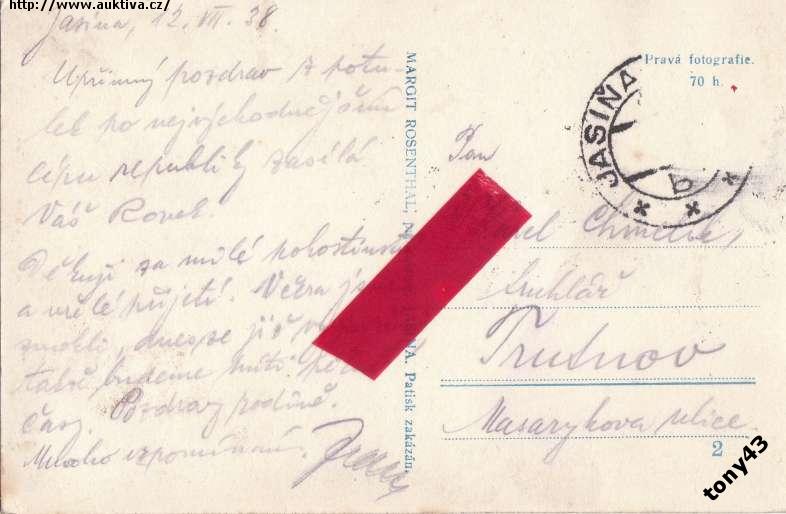 http://www.auktiva.cz/
Jasiňa, 12. VII. 38.
Upřímný pozdrav z potu-
lek po nejvýchodnějším
cípu republiky zasílá
Váš
Děkuji za milé pohostinství
a vřelé přijetí. Včera
zmokli, dnes se již
také budeme míti
Pozdrav rodině.
Mnoho vzpomínání.
MARGIT ROSENTHAL,
Patisk zakázán.
Pravá fotografie.
70 h.
JASIŇA
b
Pan
Truhlář
Trutnov
Masarykova ulice
2
tony43